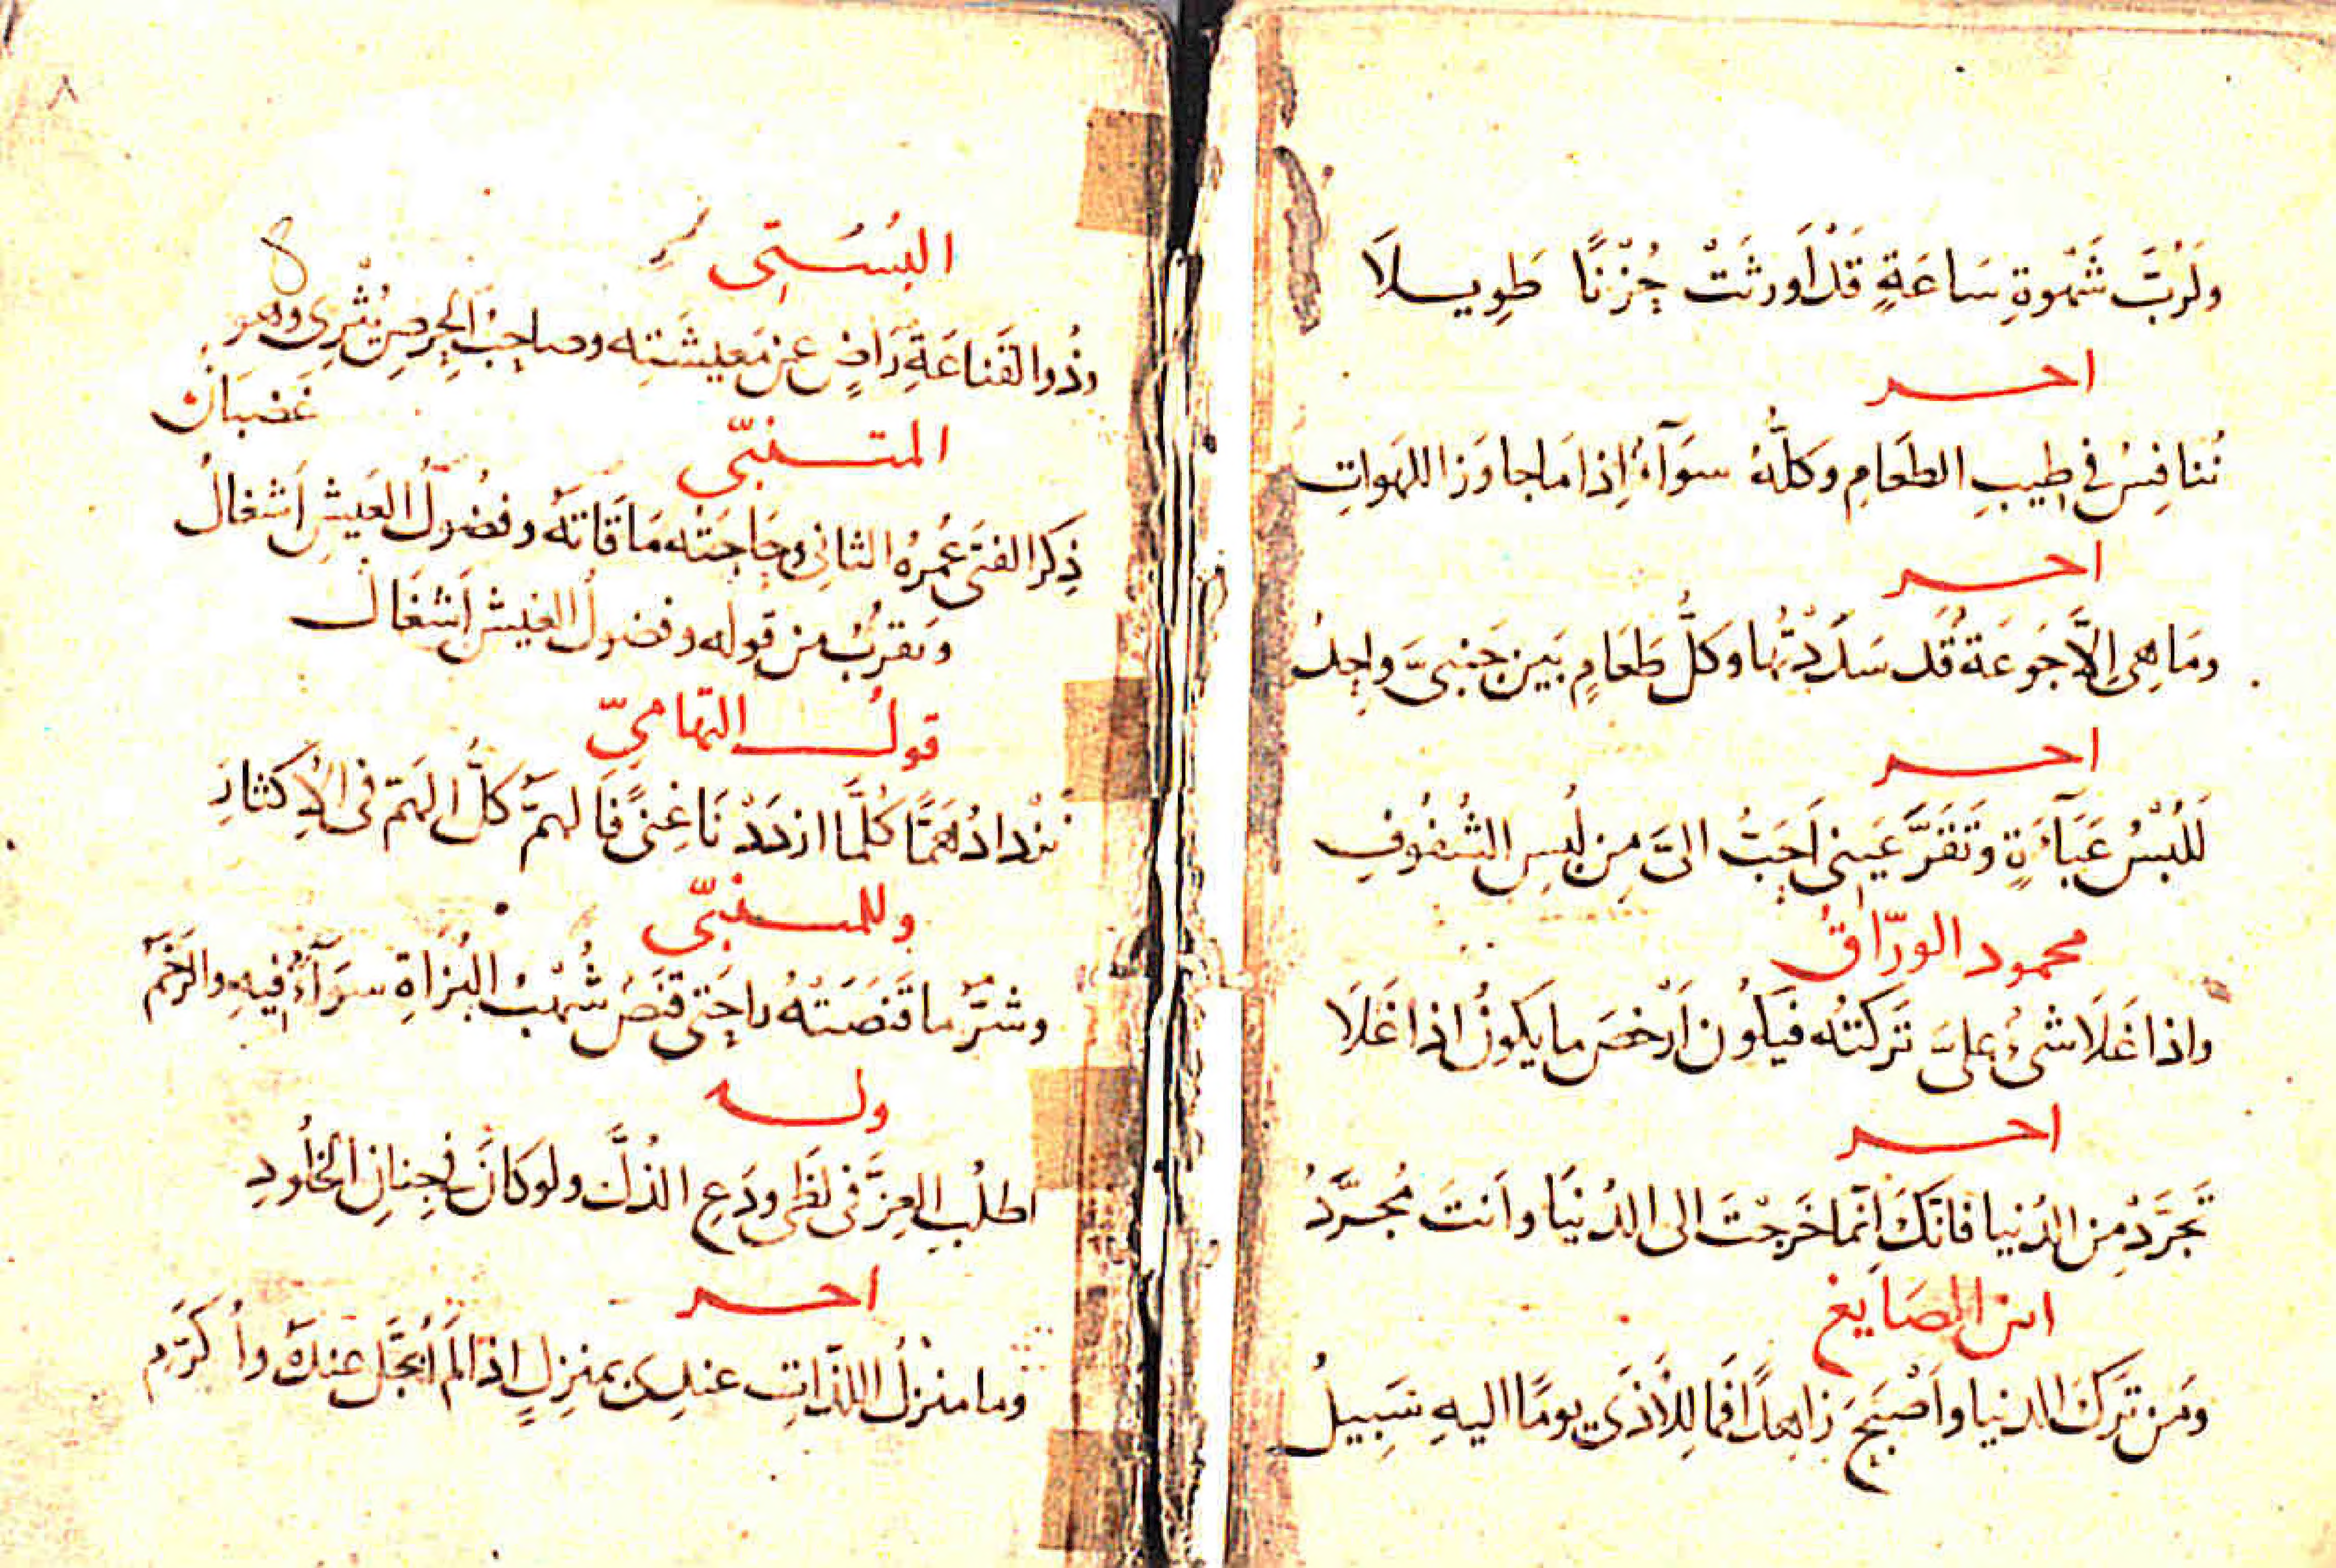 ولَرُبَّ شَهْوةِ سَاعَةٍ قَدْ اَورثَتْ حُزْنًا طَوِيلاَ
اخر
نُنافِسُ في طِيبِ الطَعَامِ وكلُّهُ سوَآءٌ اِذا مَا جاوَزَ اللهَواتِ
اخر
ومَا هِىَ اِلاَّ جَوعَةٌ قَد سَدَدْتُها وكلُّ طَعَامٍ بَين جَنبىَّ واحِدُ
اخر
لَلُبْسُ عَبَآءَةٍ وتَقَرَّ عَينِى اَحَبُّ الىَّ مِن لُبسِ الشُفُوفِ
محمود الورّاقُ
واذا غَلَا شىءٌ علىَّ تَركتُه فيَكُون اَرْخصَ ما يَكونُ اذا غَلَا
اخر
تَجَرَّدْ مِن الدُنيا فانَّكَ اِنّما خَرجْتَ الى الدُنيَا واَنتَ مُجرَّدُ
ابن الصَايغ
ومَن تَرَكَ الدنيا واَصْبَحَ زاهِداً فَما لِلأَذَى يومًا اليهِ سَبِيلُ
٨
البُسُتِى
وذُو القَناعَةِ رَاضٍ عن مَعِيشَتِه وصاحِبُ الحِرصِ يُثْرِى وهو
غَضبَانُ
المتنبّى
ذِكرُ الفتَى عُمرُهُ الثانِى وحَاجَتُه مَا قَاتَهُ وفضُولُ العَيشِ اَشغالُ
وَيقرُبُ من قوله وفضولُ العَيشِ اَشغَال
قولُ التهامىّ
نَزْدادُ هَمًّا كُلَّما ازدَدْنَا غِنىً فَالهمُّ كلُّ الهَمّ فى الاِكثارِ
وللمتنبّى
وشرُّ ما قَنَصَتْهُ راحَتى قنَصٌ شُهْبُ البُزَاةِ سوَآءٌ فِيهِ والرَخَمُ
وله
اطلُبِ العِزَّ فى لظَى ودَعِ الذُلَّ ولو كانَ فى جِنانِ الخلُودِ
اخر
وما منزلُ اللذّاتِ عندِى بمنزِلٍ اذا لَم اُبَجَّل عِندَهُ واُكرَّمِ